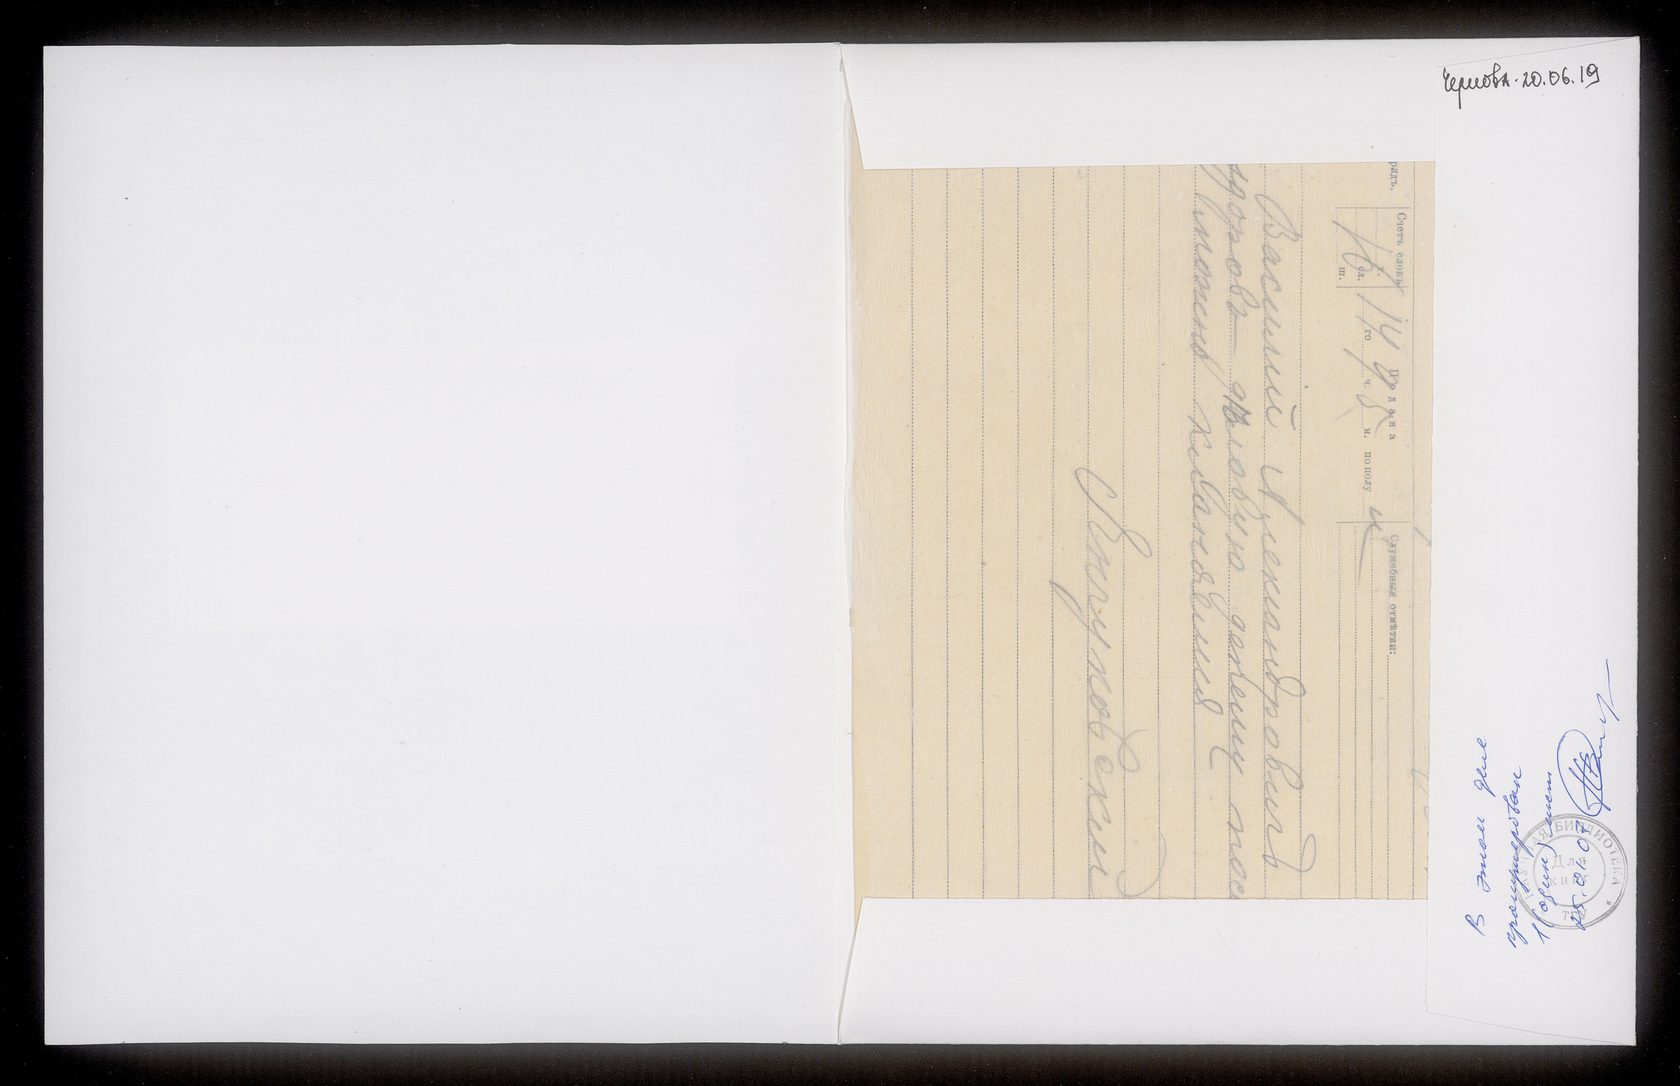 Чернова. 20.06.19
рядъ.
Счетъ словъ
16
сл.
ш.
Подана
14 го ч. 5 м. пополу
Служебныя отмѣтки:
Василий Александровичъ
здоровъ дѣловую депешу пос
кланяемся
Янчуковский
В этом деле
пронумерован
1 (один) лист
25.01.07
БИБЛИОТЕКА
Для
книг